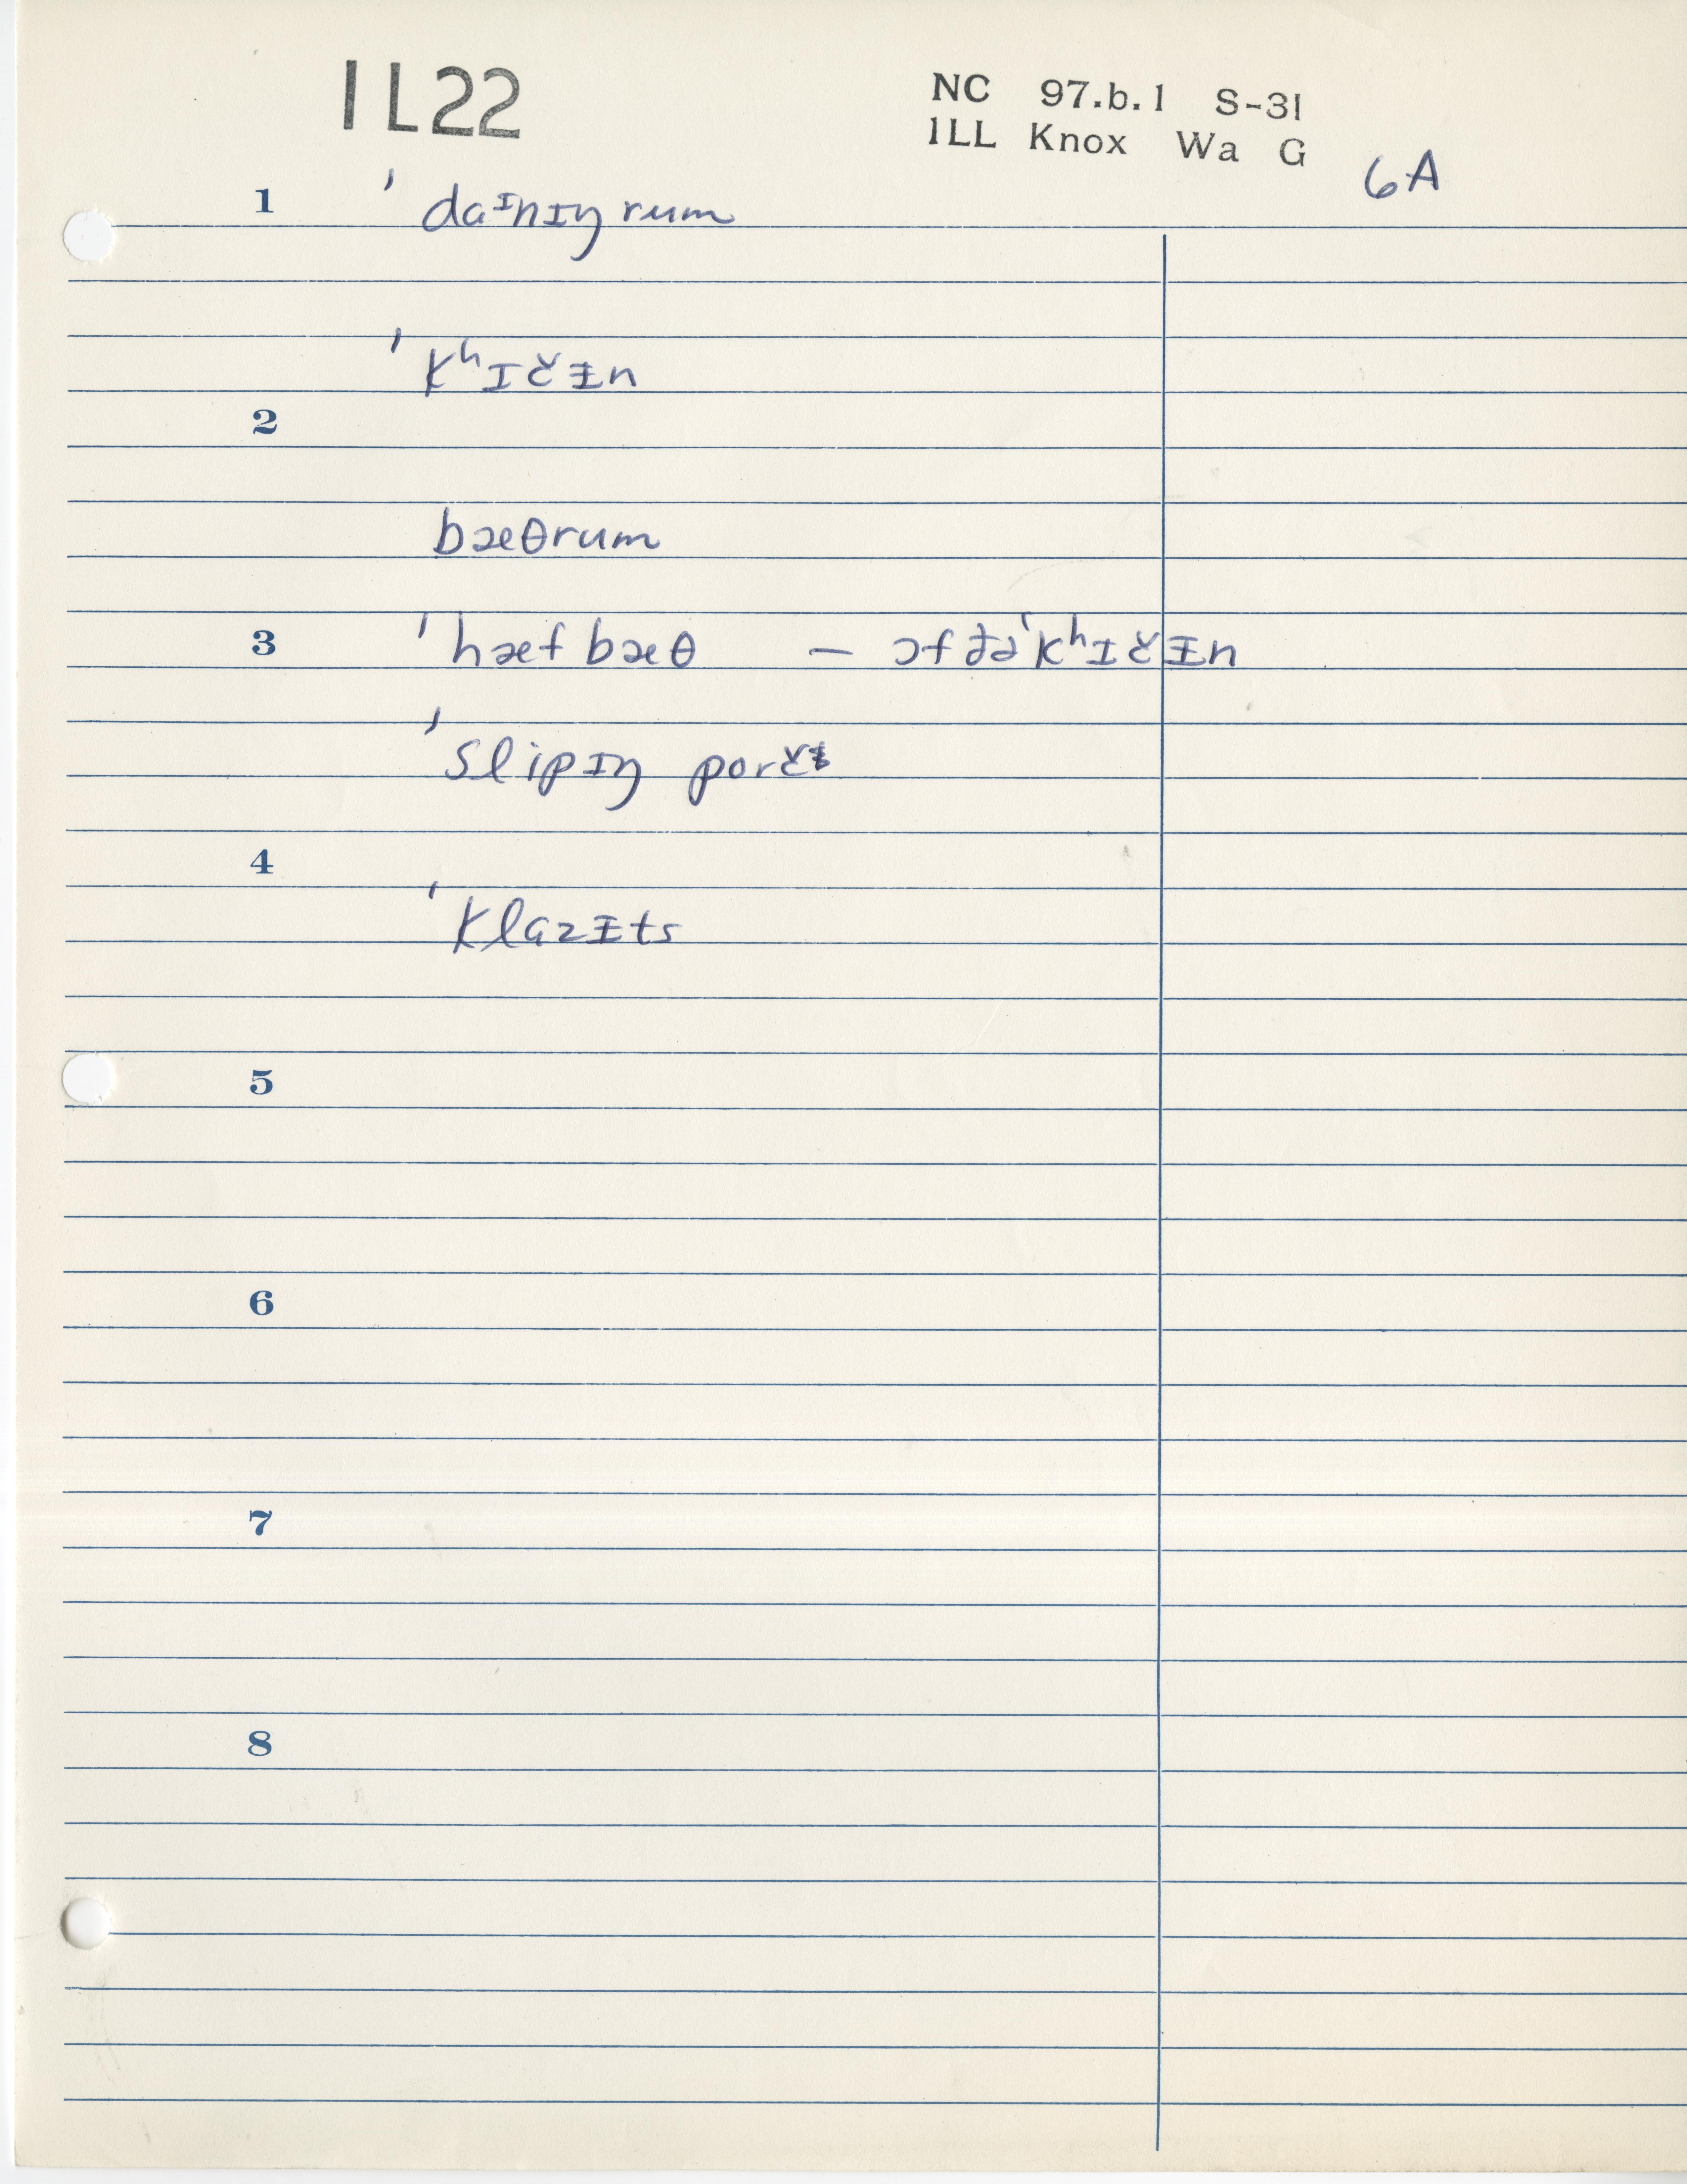 1L22
NC 97.b.1 S-31
1LL Knox Wa G
6A
1 ˈdaᶦnɪŋ rum
ˈkʰɪčɪ̵n
2
bæθrum
3 ˈhæf bæθ — ɔf ðəˈkʰɪčɪ̵n
ˈslipɪŋ porč
4
ˈklazɪ̵ts
5
6
7
8